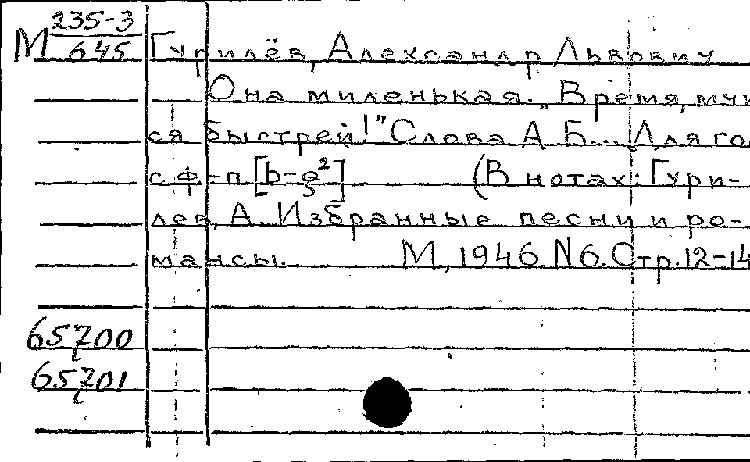 М 235-3/645 Гурилёв, Александр Львович
Она миленькая. „Время, мчи
ся быстрей!" Слова А. Б... Для го
с ф-п [b-g²] (В нотах: Гури-
лев, А. Избранные песни и ро-
мансы. М., 1946. N6. Стр. 12-14
65700
65701